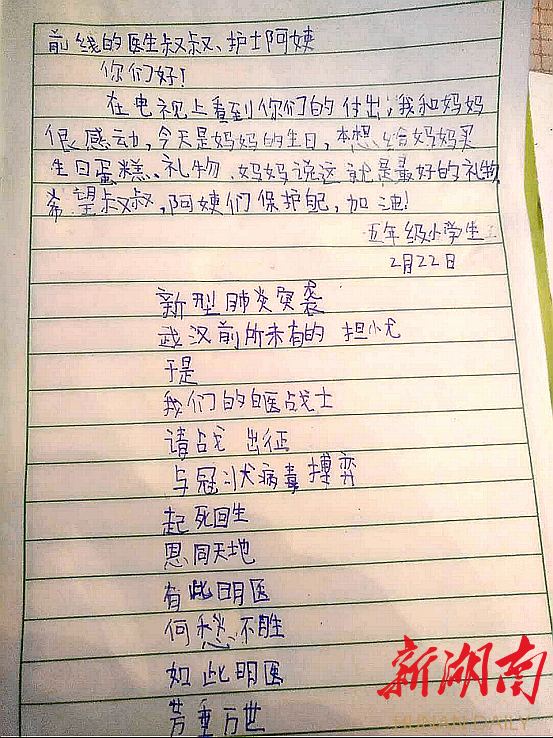 前线的医生叔叔、护士阿姨
你们好!
在电视上看到你们的付出,我和妈妈
很感动,今天是妈妈的生日,本想给妈妈买
生日蛋糕、礼物、妈妈说这就是最好的礼物
希望叔叔,阿姨们保护自己,加油!
五年级小学生
2月22日
新型肺炎突袭
武汉前所未有的担忧
于是
我们的白医战士
请战出征
与冠状病毒搏弈
起死回生
恩同天地
有此明医
何愁不胜
如此明医
芳垂万世
新湖南
HUNAN DAILY